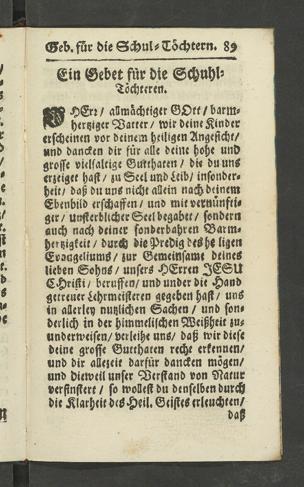 Geb. für die Schul-Töchtern. 89
Ein Gebet für die Schuhl-
Töchteren.
O HErr/ allmächtiger GOtt/ barm-
hertziger Vatter/ wir deine Kinder
erscheinen vor deinem heiligen Angesicht/
und dancken dir für alle deine hohe und
grosse vielfaltige Gutthaten/ die du uns
erzeiget hast/ zu Seel und Leib/ insonder-
heit/ daß du uns nicht allein nach deinem
Ebenbild erschaffen/ und mit vernünfti-
ger/ unsterblicher Seel begabet/ sondern
auch nach deiner sonderbahren Barm-
hertzigkeit/ durch die Predig des heligen
Evangeliums/ zur Gemeinsame deines
lieben Sohns/ unsers HErren JESU
Christi/ beruffen/ und under die Hand
getreuer Lehrmeisteren gegeben hast/ uns
in allerley nutzlichen Sachen/ und son-
derlich in der himmelischen Weißheit zu-
underweisen/ verleihe uns/ daß wir diese
deine grosse Gutthaten recht erkennen/
und dir allezeit darfür dancken mögen/
und dieweil unser Verstand von Natur
verfinstert/ so wollest du denselben durch
die Klarheit des Heil. Geistes erleuchten/
daß